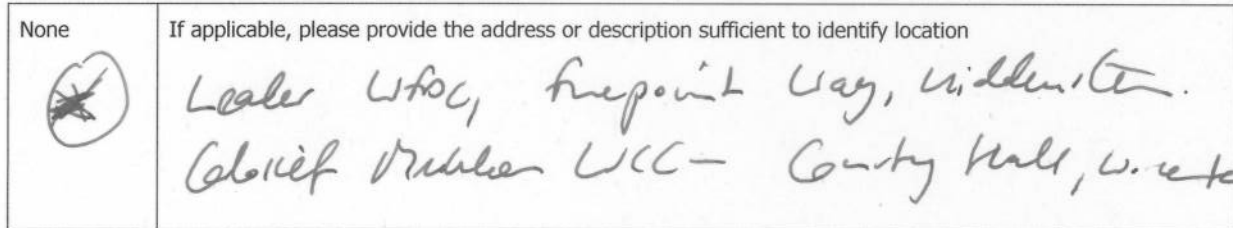 None
If applicable, please provide the address or description sufficient to identify location
Leader WFDC, Finepoint Way, Kidderminster.
Cabinet Member WCC - County Hall, Worcester